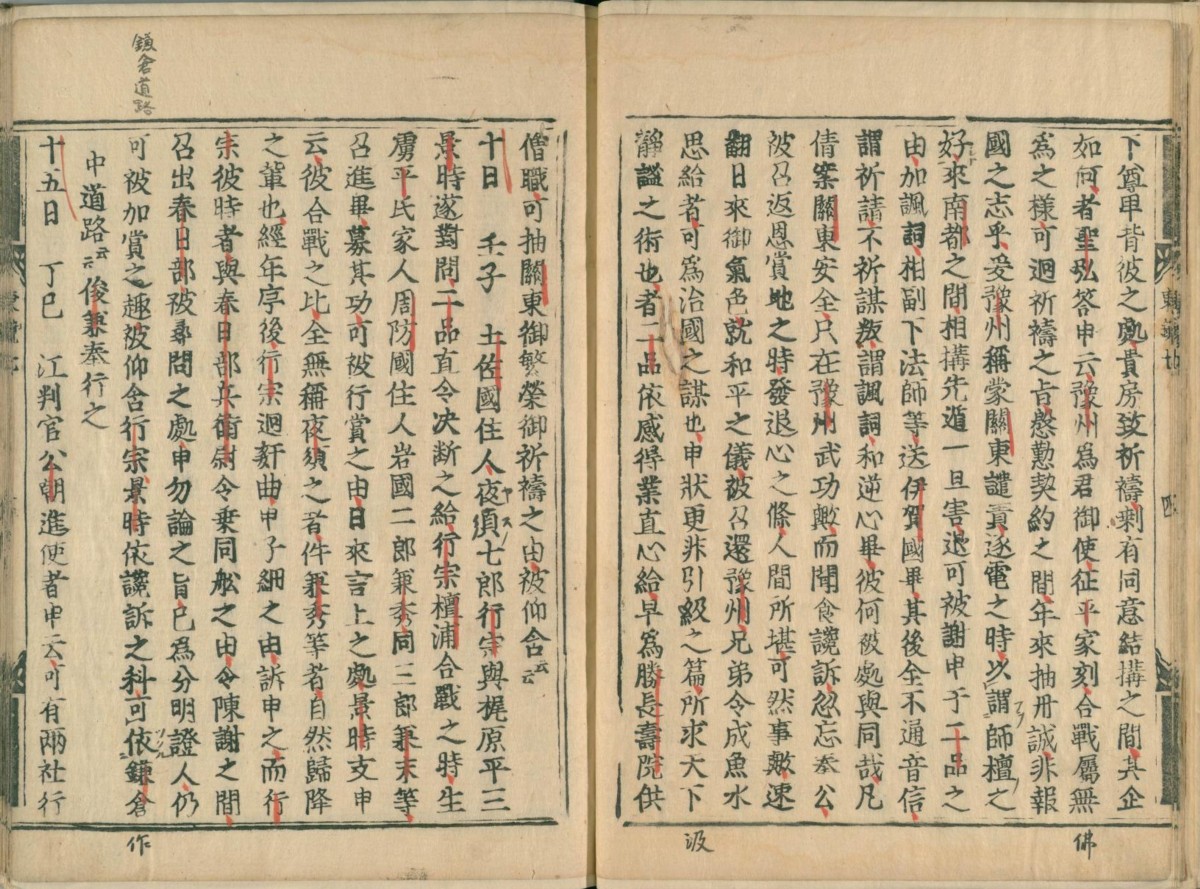 下尊卑背彼之處貴房致祈禱剩有同意結構之間其企
如何者聖弘答申云豫州爲君御使征平家刻合戰屬無
爲之様可廻祈禱之旨慇懃契約之間年來抽丹誠非報
國之志乎爰豫州稱蒙關東譴責逐電之時以謂師檀之
好來南都之間相搆先遁一旦害退可被謝申于二品之
由加諷詞相副下法師等送伊賀國畢其後全不通音信
謂祈請不祈謀叛謂諷詞和逆心畢彼何被處與同哉凡
倩案關東安全只在豫州武功歟而聞食讒訴忽忘奉公
被召返恩賞地之時發退心之條人間所堪可然事歟速
翻日來御氣色就和平之儀被召還豫州兄弟令成魚水
思給者可爲治國之謀也申狀更非引級之篇所求天下
靜謐之術也者二品依感得業直心給早爲勝長壽院供
佛
汲
僧職可抽關東御繁榮御祈禱之由被仰含云云
十日 壬子 土佐國住人夜須七郎行宗與梶原平三
ヤス
景時遂對問二品直令決斷之給行宗檀浦合戰之時生
虜平氏家人周防國住人岩國二郎兼秀同三郎兼末等
召進畢募其功可被行賞之由日來言上之處景時支申
云彼合戰之比全無稱夜須之者件兼秀等者自然歸降
之輩也經年序後行宗廻姧曲申子細之由訴申之而行
宗彼時者與春日部兵衛尉令乗同舩之由令陳謝之間
召出春日部被尋問之處申勿論之旨已爲分明證人仍
可被加賞之趣被仰含行宗景時依讒訴之科可依鎌倉
中道路云云俊兼奉行之
十五日 丁巳 江判官公朝進使者申云可有兩社行
鎌倉道路
作